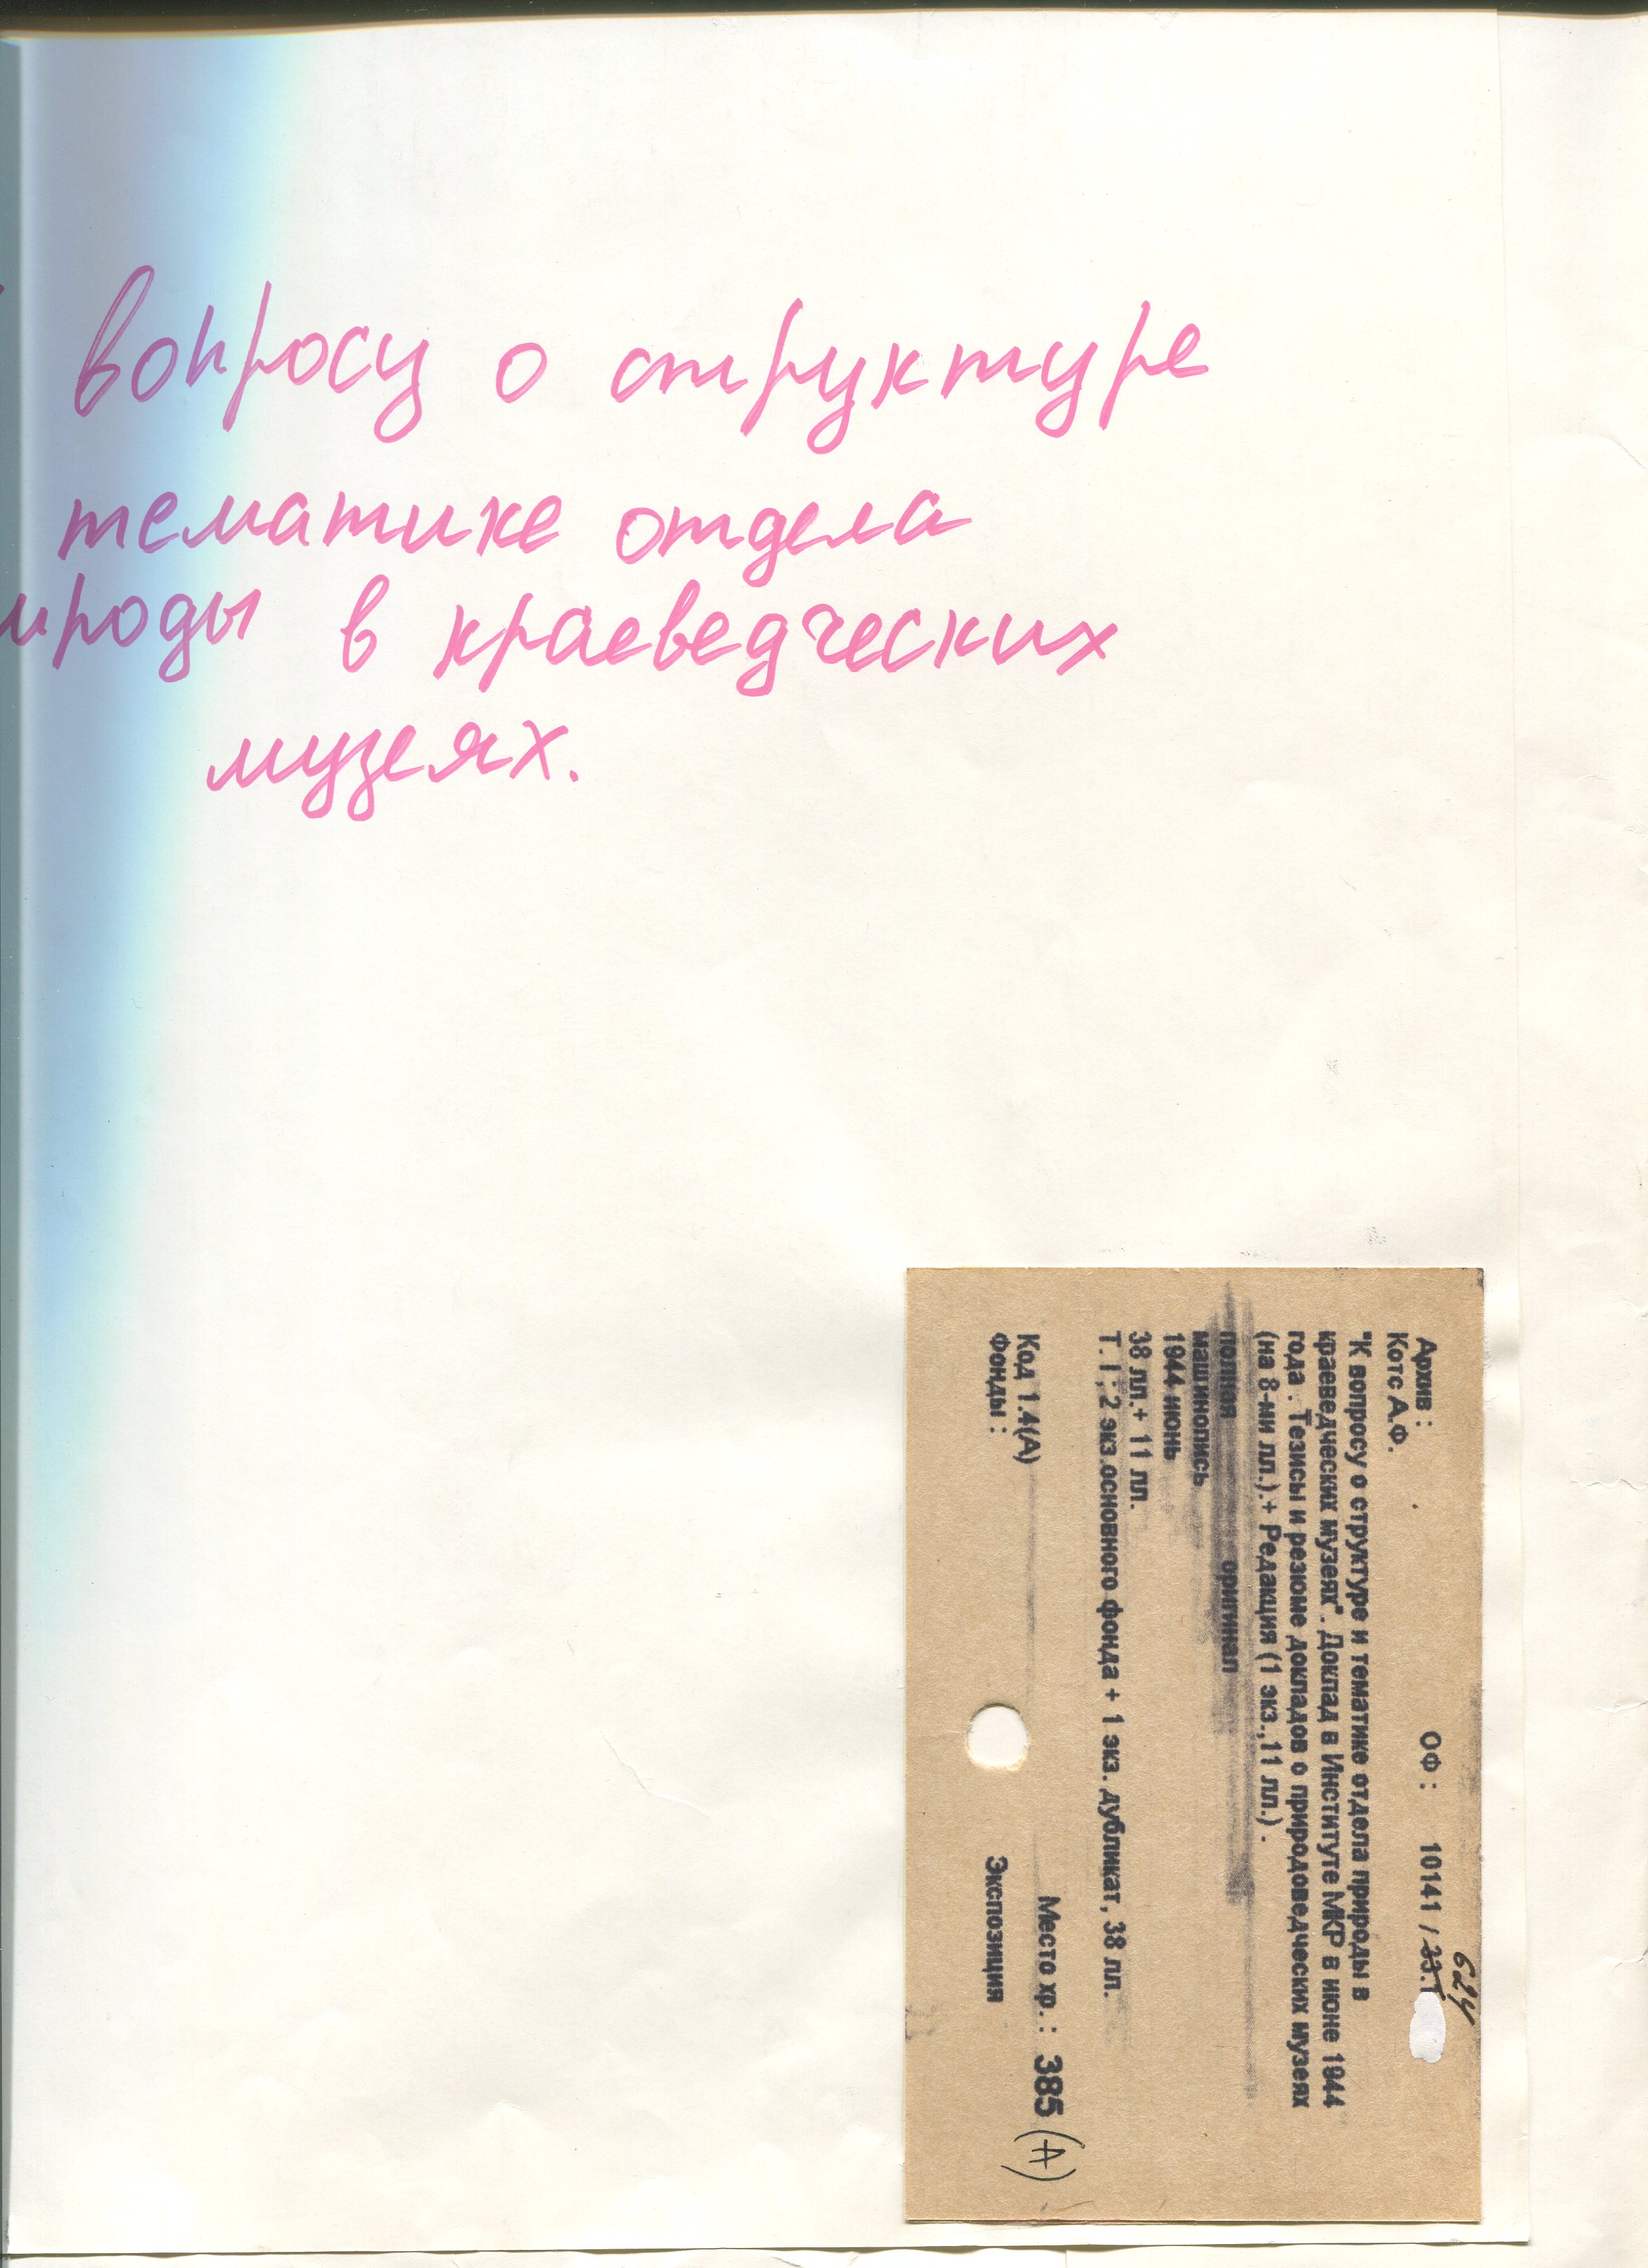 вопросу о структуре
тематике отдела
ироды в краеведческих
музеях.
Архив : ОФ : 10141 / 33.Т 624
Котс А.Ф.
"К вопросу о структуре и тематике отдела природы в
краеведческих музеях". Доклад в Институте МКР в июне 1944
года . Тезисы и резюме докладов о природоведческих музеях
(на 8-ми лл.).+ Редакция (1 экз.,11 лл.) .
полная оригинал
машинопись
1944 июнь
38 лл.+ 11 лл.
Т. I ; 2 экз.основного фонда + 1 экз. дубликат, 38 лл.
Код 1.4(А) Место хр. : 385 (А)
Фонды : Экспозиция